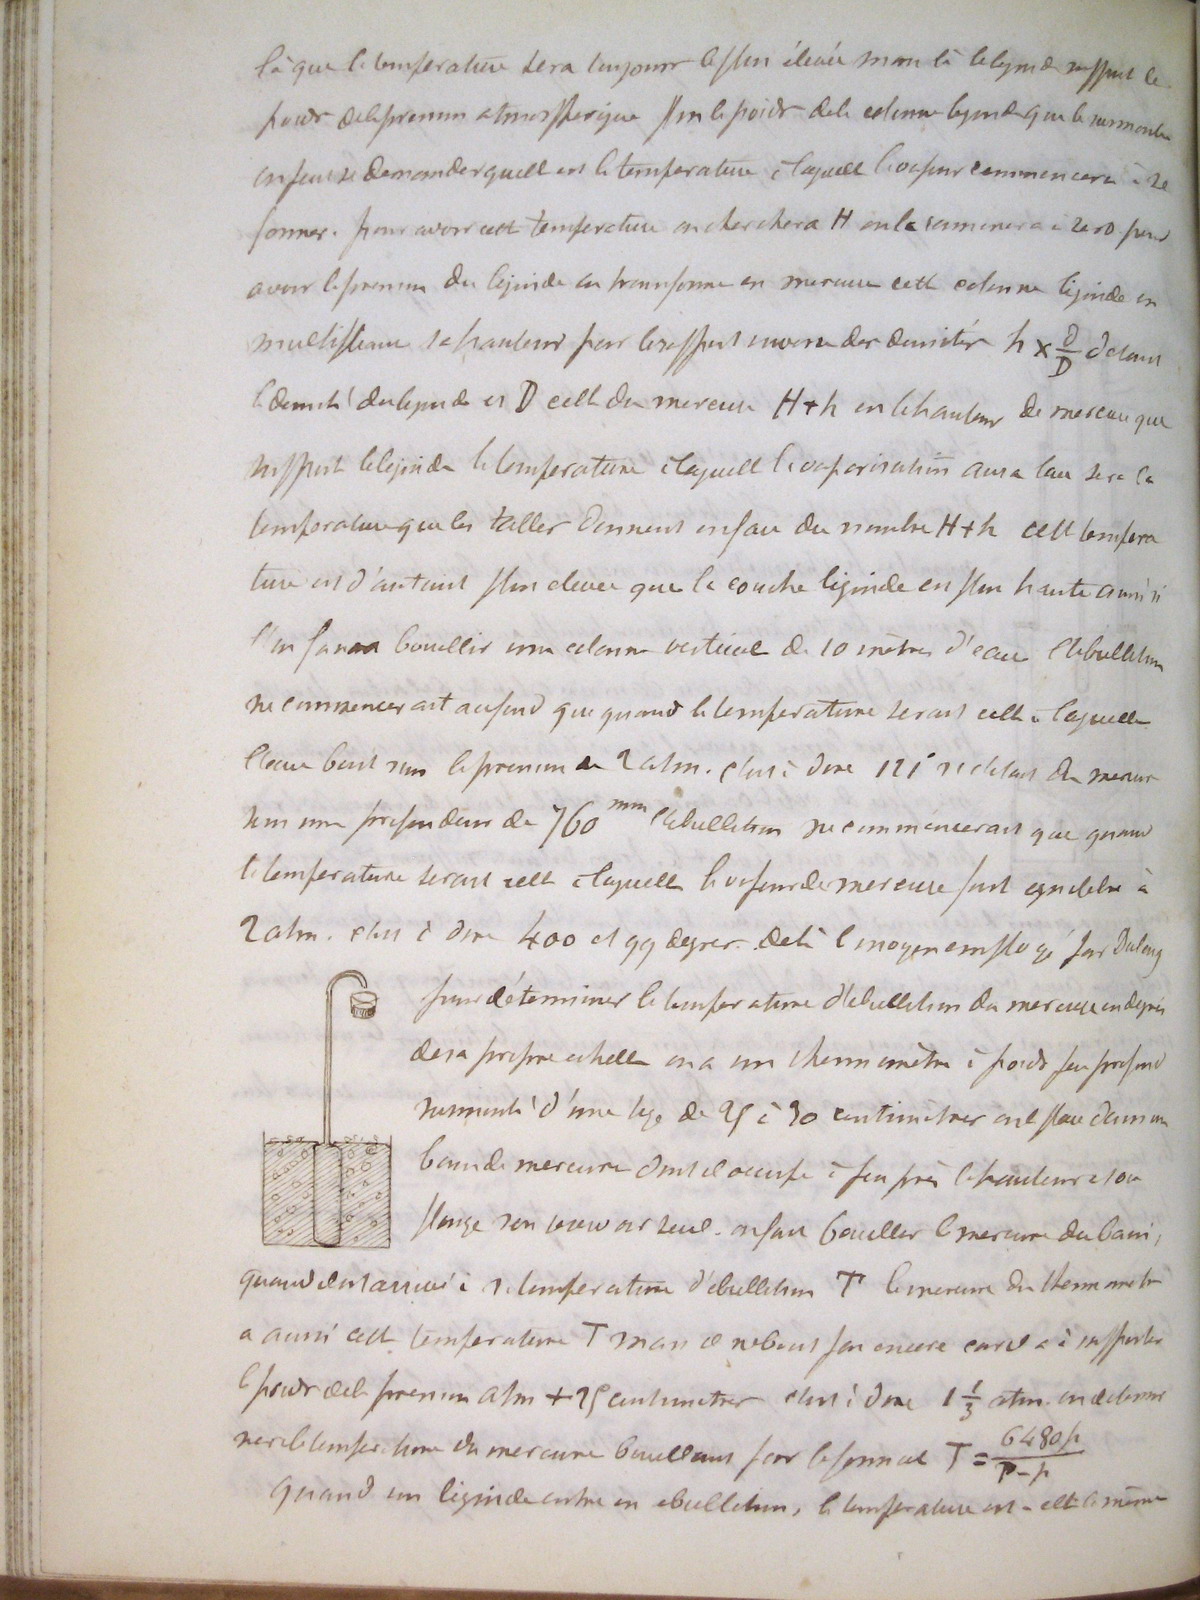 là que la temperature sera toujours le plus élevée mais là le liquide supporte le
poids de la pression atmospherique plus le poids de la colonne liquide qui le surmonte
on peut se demander quelle est la temperature à laquelle la vapeur commencera à se
former. pour avoir cette temperature on cherchera H on la ramenera à zero pour
avoir la pression du liquide on transforme en mercure cette colonne liquide en
multipliant sa hauteur par le rapport inverse des densités h × d/D d etant
la densité du liquide et D celle du mercure H + h est la hauteur de mercure que
supporte le liquide la temperature à laquelle la vaporisation aura lieu sera la
temperature que les tables donnent en face du nombre H + h cette tempera
ture est d'autant plus elevee que la couche liquide est plus haute ainsi si
l'on faisait bouillir une colonne verticale de 10 mètres d'eau l'ebullition
ne commencerait au fond que quand la temperature serait celle à laquelle
l'eau bout sous la pression de 2 atm. c'est à dire 121° si c'etait du mercure
sous une profondeur de 760 mm l'ebullition ne commencerait que quand
la temperature serait celle à laquelle la vapeur de mercure fait equilibre à
2 atm. c'est à dire 400 et qq degres. De là le moyen employé par Dulong
pour déterminer la temperature d'ebullition du mercure en degrés
de sa propre echelle on a un thermomètre à poids peu profond
surmonté d'une tige de 25 à 30 centimetres on le place dans un
bain de mercure dont il occupe à peu près la hauteur et on
plonge son reservoir seul. on fait bouillir le mercure du bain,
quand il est arrivé à sa temperature d'ebullition T le mercure du thermometre
a aussi cette temperature T mais il ne bout pas encore car il a à supporter
le poids de la pression atm + 25 centimetres c'est à dire 1 1/3 atm. on determi
nera la temperature du mercure bouillant par la formule T = 6480p/P-p
Quand un liquide entre en ebullition, la temperature est-elle la même